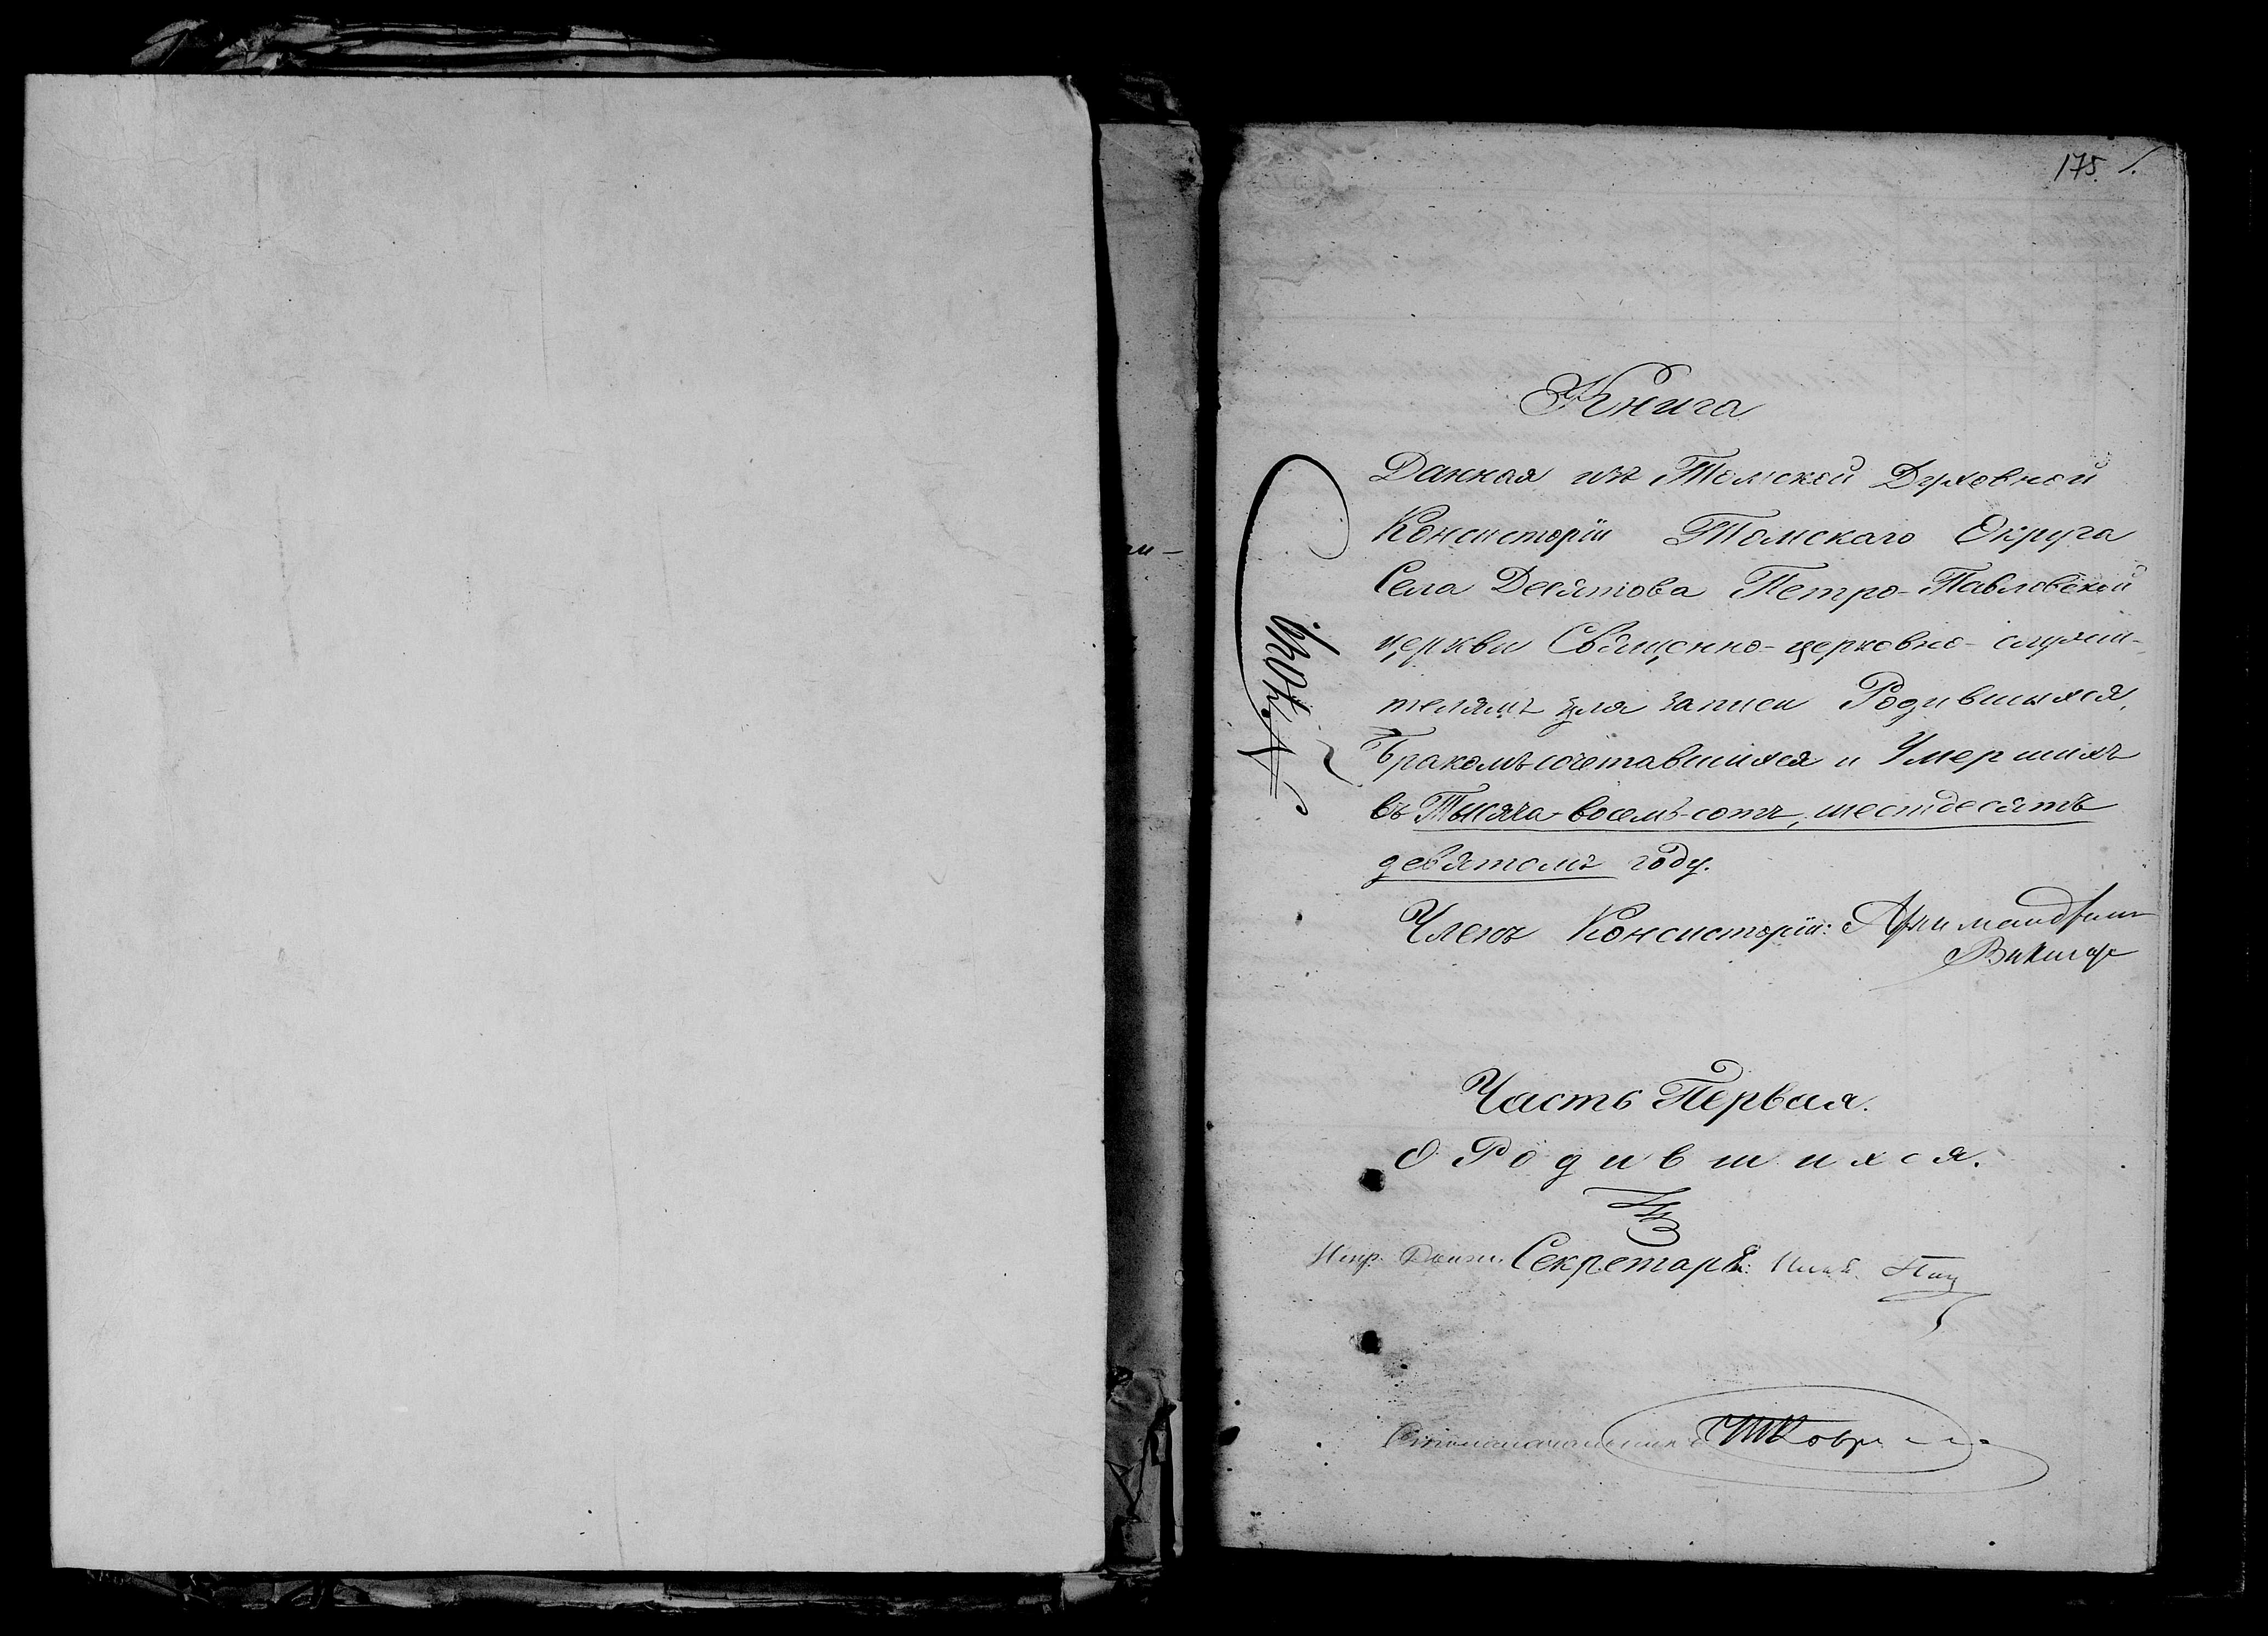 175. 1.
Книга
Данная изъ Томской Духовной
Консисторіи Томскаго Округа
Села Десятова Петро-Павловской
церкви Священно-церковно-служи-
телямъ для записи Родившихся,
Бракомъ сочетавшихся и Умершихъ
въ Тысяча-восемь-сотъ, шестдесятъ
девятомъ году.
Членъ Консисторіи: Архимандритъ
Викторъ
Часть Первая.
О Родившихся.
Секретаря:
Столоначальникъ